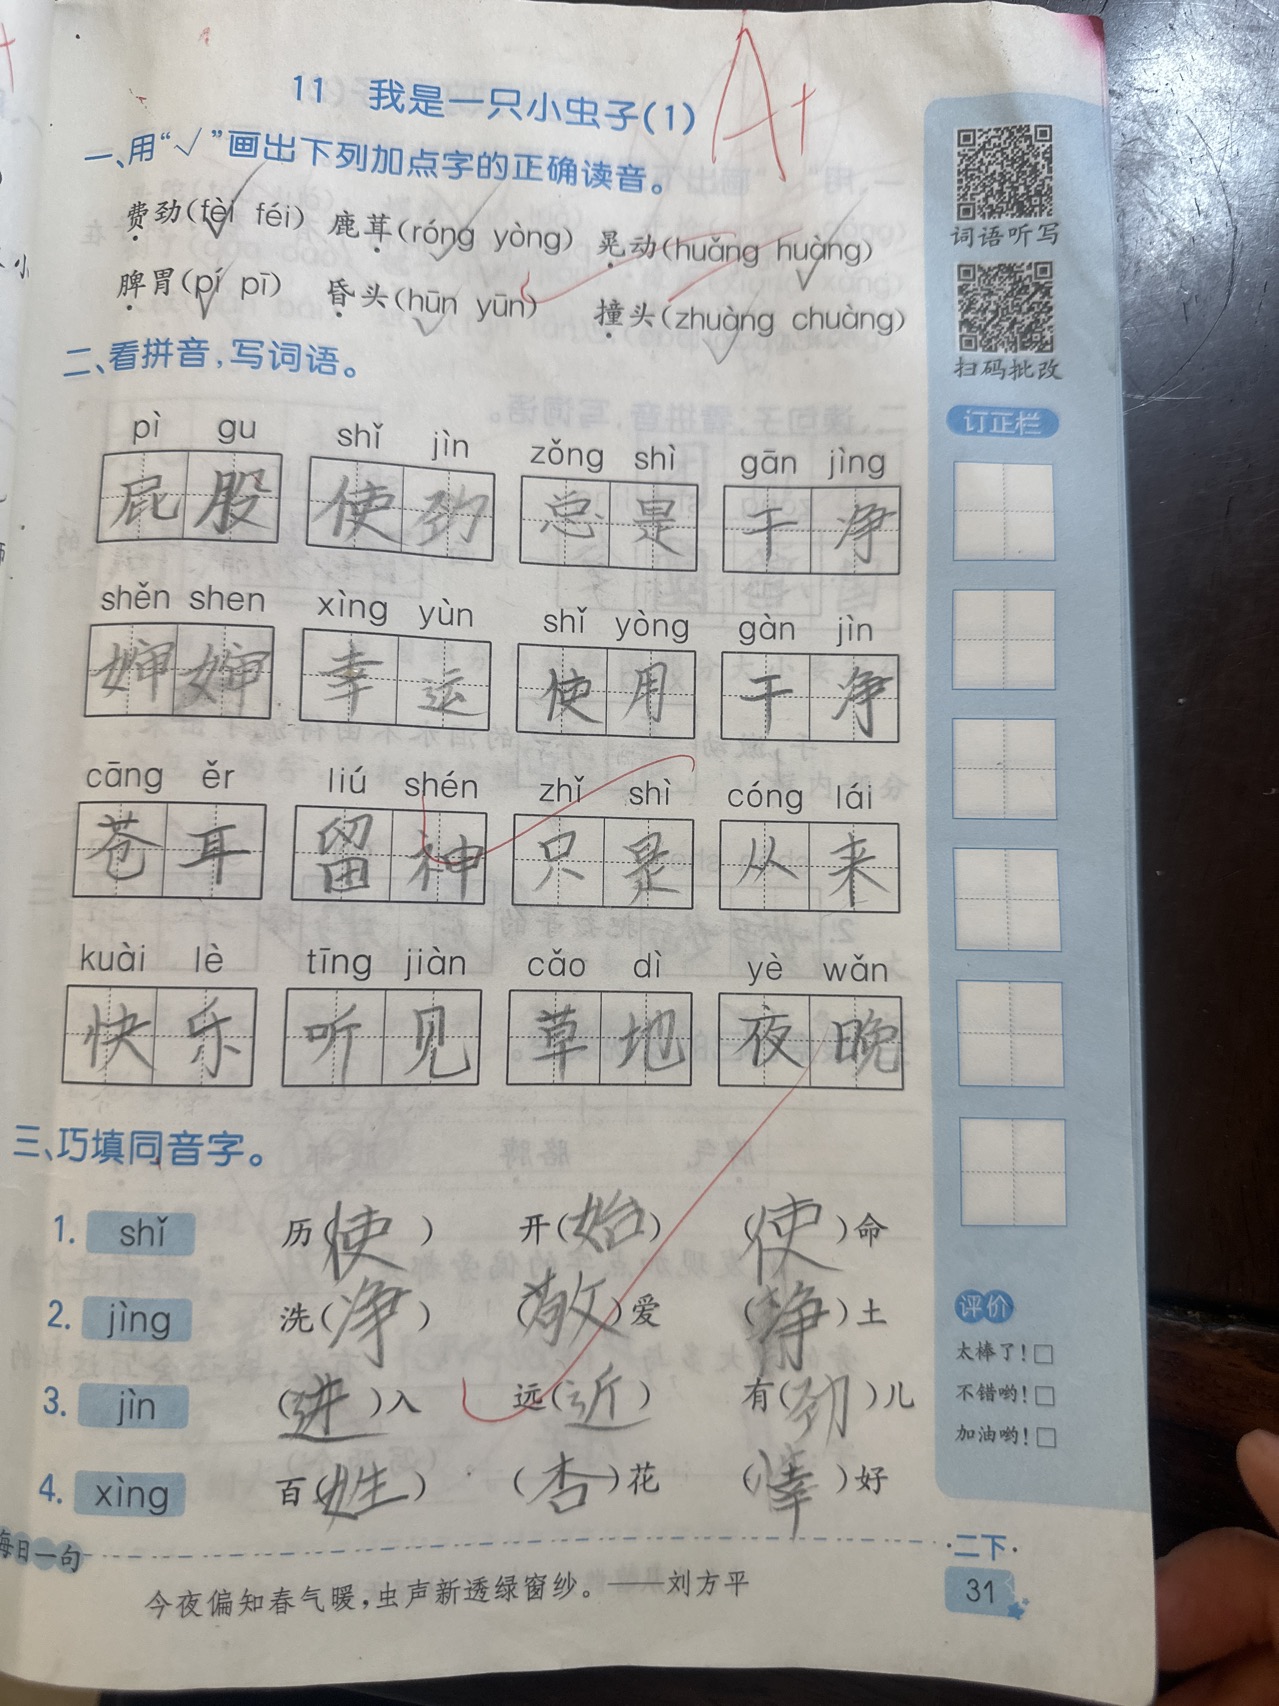 A+
11 我是一只小虫子(1)
一、用“√”画出下列加点字的正确读音。
费劲(fèi féi) 鹿茸(róng yòng) 晃动(huǎng huàng)
脾胃(pí pī) 昏头(hūn yūn) 撞头(zhuàng chuàng)
二、看拼音,写词语。
pì gu shǐ jìn zǒng shì gān jìng
屁股 使劲 总是 干净
shěn shen xìng yùn shǐ yòng gàn jìn
婶婶 幸运 使用 干净
cāng ěr liú shén zhǐ shì cóng lái
苍耳 留神 只是 从来
kuài lè tīng jiàn cǎo dì yè wǎn
快乐 听见 草地 夜晚
三、巧填同音字。
1. shǐ 历(使) 开(始) (使)命
2. jìng 洗(净) (敬)爱 (静)土
3. jìn (进)入 远(近) 有(劲)儿
4. xìng 百(姓) (杏)花 (悻)好
每日一句
今夜偏知春气暖,虫声新透绿窗纱。——刘方平
词语听写
扫码批改
订正栏
评价
太棒了!□
不错哟!□
加油哟!□
·二下·
31